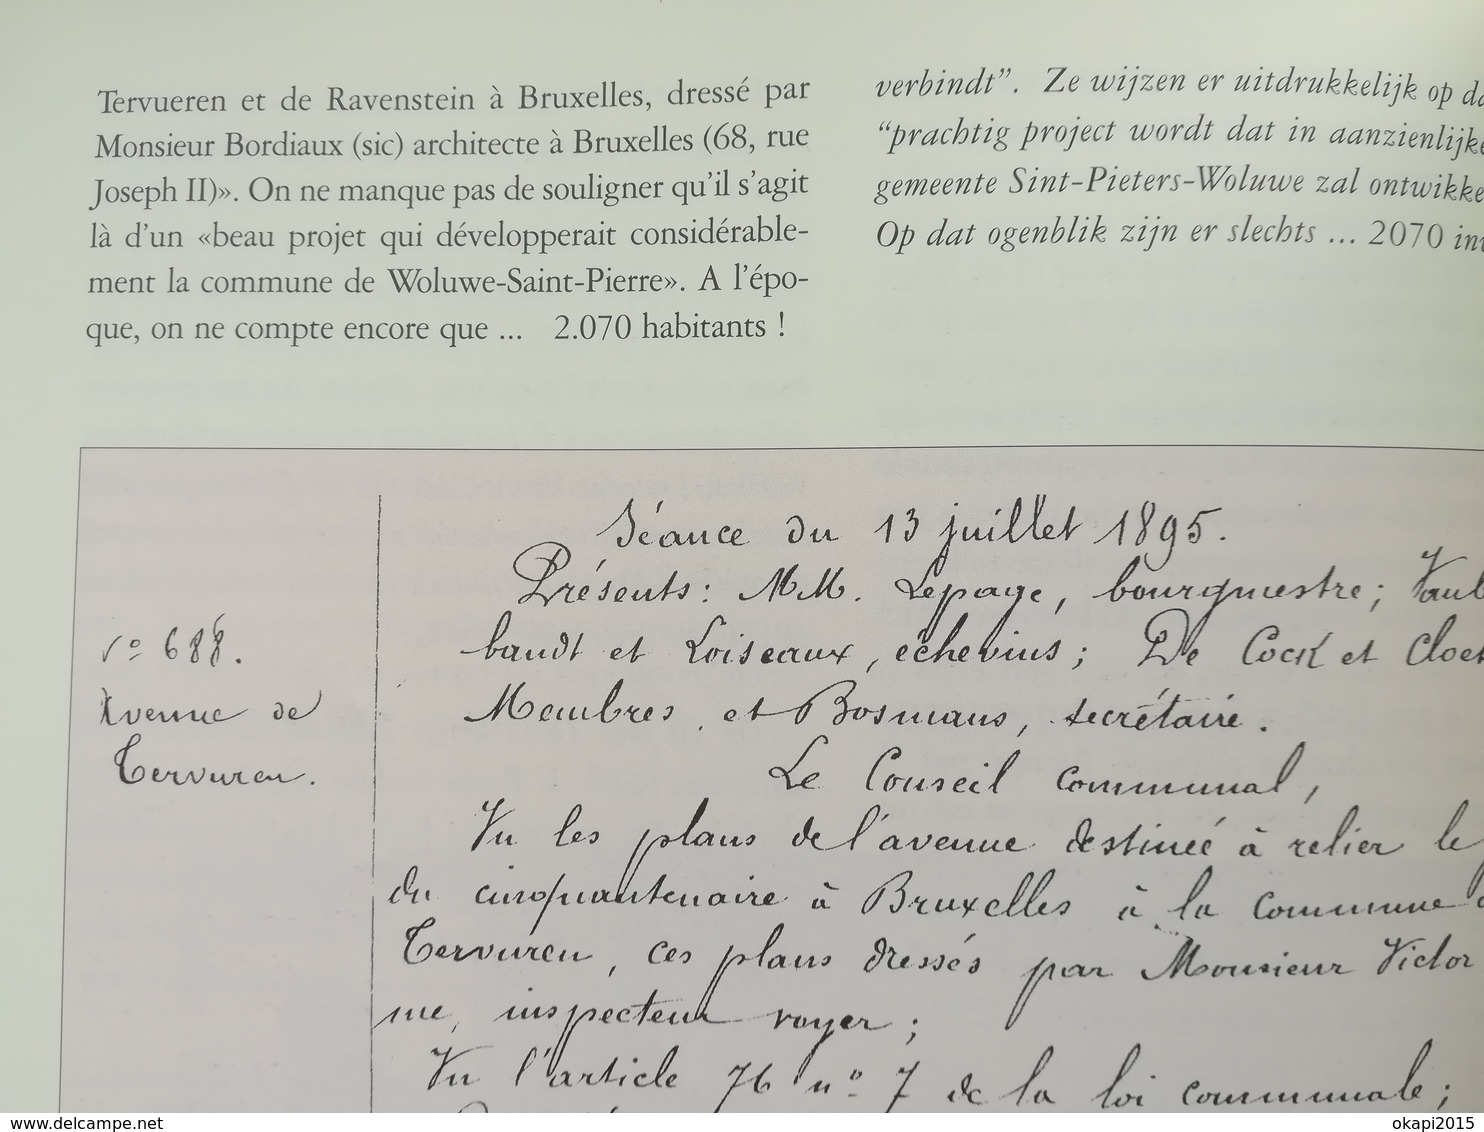 Tervueren et de Ravenstein à Bruxelles, dressé par
Monsieur Bordiaux (sic) architecte à Bruxelles (68, rue
Joseph II)». On ne manque pas de souligner qu'il s'agit
là d'un «beau projet qui développerait considérable-
ment la commune de Woluwe-Saint-Pierre». A l'épo-
que, on ne compte encore que ... 2.070 habitants !
verbindt". Ze wijzen er uitdrukkelijk op
"prachtig project wordt dat in aanzienlijke
gemeente Sint-Pieters-Woluwe zal ontwikke
Op dat ogenblik zijn er slechts ... 2070
Séance du 13 juillet 1895.
Présents: MM. Lepage, bourgmestre;
baudt et Loiseaux, échevins; De Cock et Cloet
Membres, et Bosmans, secrétaire.
Nº 688.
Avenue de
Tervuren.
Le Conseil communal,
Vu les plans de l'avenue destinée à relier le
du cinquantenaire à Bruxelles à la commune
Tervuren, ces plans dressés par Monsieur Victor
me, inspecteur voyer;
Vu l'article 76 nº 7 de la loi communale;
www.delcampe.net
okapi2015